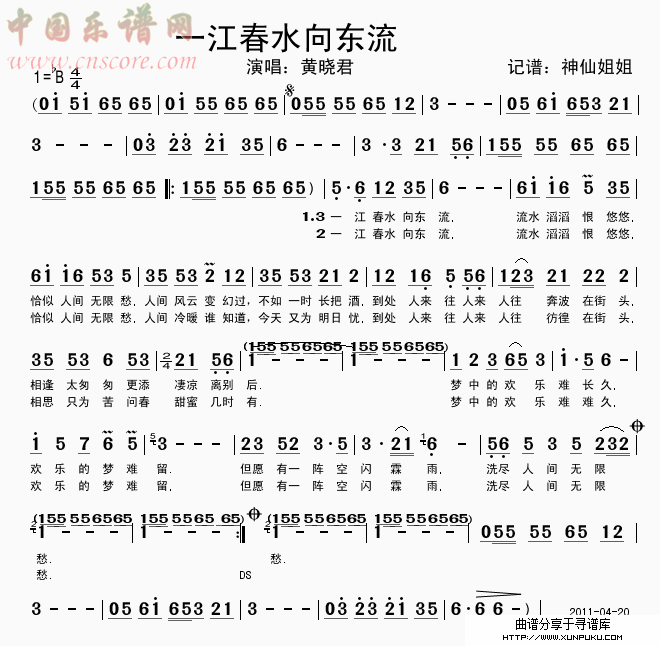 中国乐谱网
www.cnscore.com
一江春水向东流
1=♭B 4/4
演唱：黄晓君
记谱：神仙姐姐
(01 51 65 65 | 01 55 65 65 | 055 55 65 12 | 3 - - - | 05 61 653 21 |
3 - - - | 03 23 21 35 | 6 - - - | 3 · 3 21 56 | 155 55 65 65 |
155 55 65 65 ‖: 155 55 65 65 ) | 5 · 6 12 35 | 6 - - - | 61 16 5 35 |
1.3 一 江 春水 向东 流. 流水 滔滔 恨 悠悠.
2 一 江 春水 向东 流. 流水 滔滔 恨 悠悠.
61 16 53 5 | 35 53 2 12 | 35 53 21 2 | 12 16 5 56 | 123 21 22 2 |
恰似 人间 无限 愁. 人间 风云 变 幻过, 不如 一时 长把 酒. 到处 人来 往 人来 人往 奔波 在街 头.
恰似 人间 无限 愁. 人间 冷暖 谁 知道, 今天 又为 明日 忧. 到处 人来 往 人来 人往 彷徨 在街 头.
(155 55 65 65 155 55 65 65)
35 53 6 53 | 2/4 21 56 | 1 - - - | 1 - - - | 1 2 3 65 3 | 1 · 5 6 - |
相逢 太匆 匆 更添 凄凉 离别 后. 梦 中 的 欢 乐 难 长 久.
相思 只为 苦 问春 甜蜜 几时 有. 梦 中 的 欢 乐 难 难 久.
1 5 7 6 5 | 5 3 - - - | 23 52 3 · 5 | 3 · 21 1 6 - | 56 5 3 5 232 |
欢 乐 的 梦 难 留. 但愿 有一 阵 空 闪 霖 雨, 洗尽 人 间 无 限
欢 乐 的 梦 难 留. 但愿 有一 阵 空 闪 霖 雨, 洗尽 人 间 无 限
(155 55 65 65 | 155 55 65 65) (155 55 65 65 | 155 55 65 65)
2 1 - - - | 1 - - - :‖ 2 1 - - - | 1 - - - | 055 55 65 12 |
愁. 愁.
愁. DS
3 - - - | 05 61 653 21 | 3 - - - | 03 23 21 35 | 6 · 6 6 - ) |
2011-04-20
曲谱分享于寻谱库
HTTP://WWW.XUNPUKU.COM